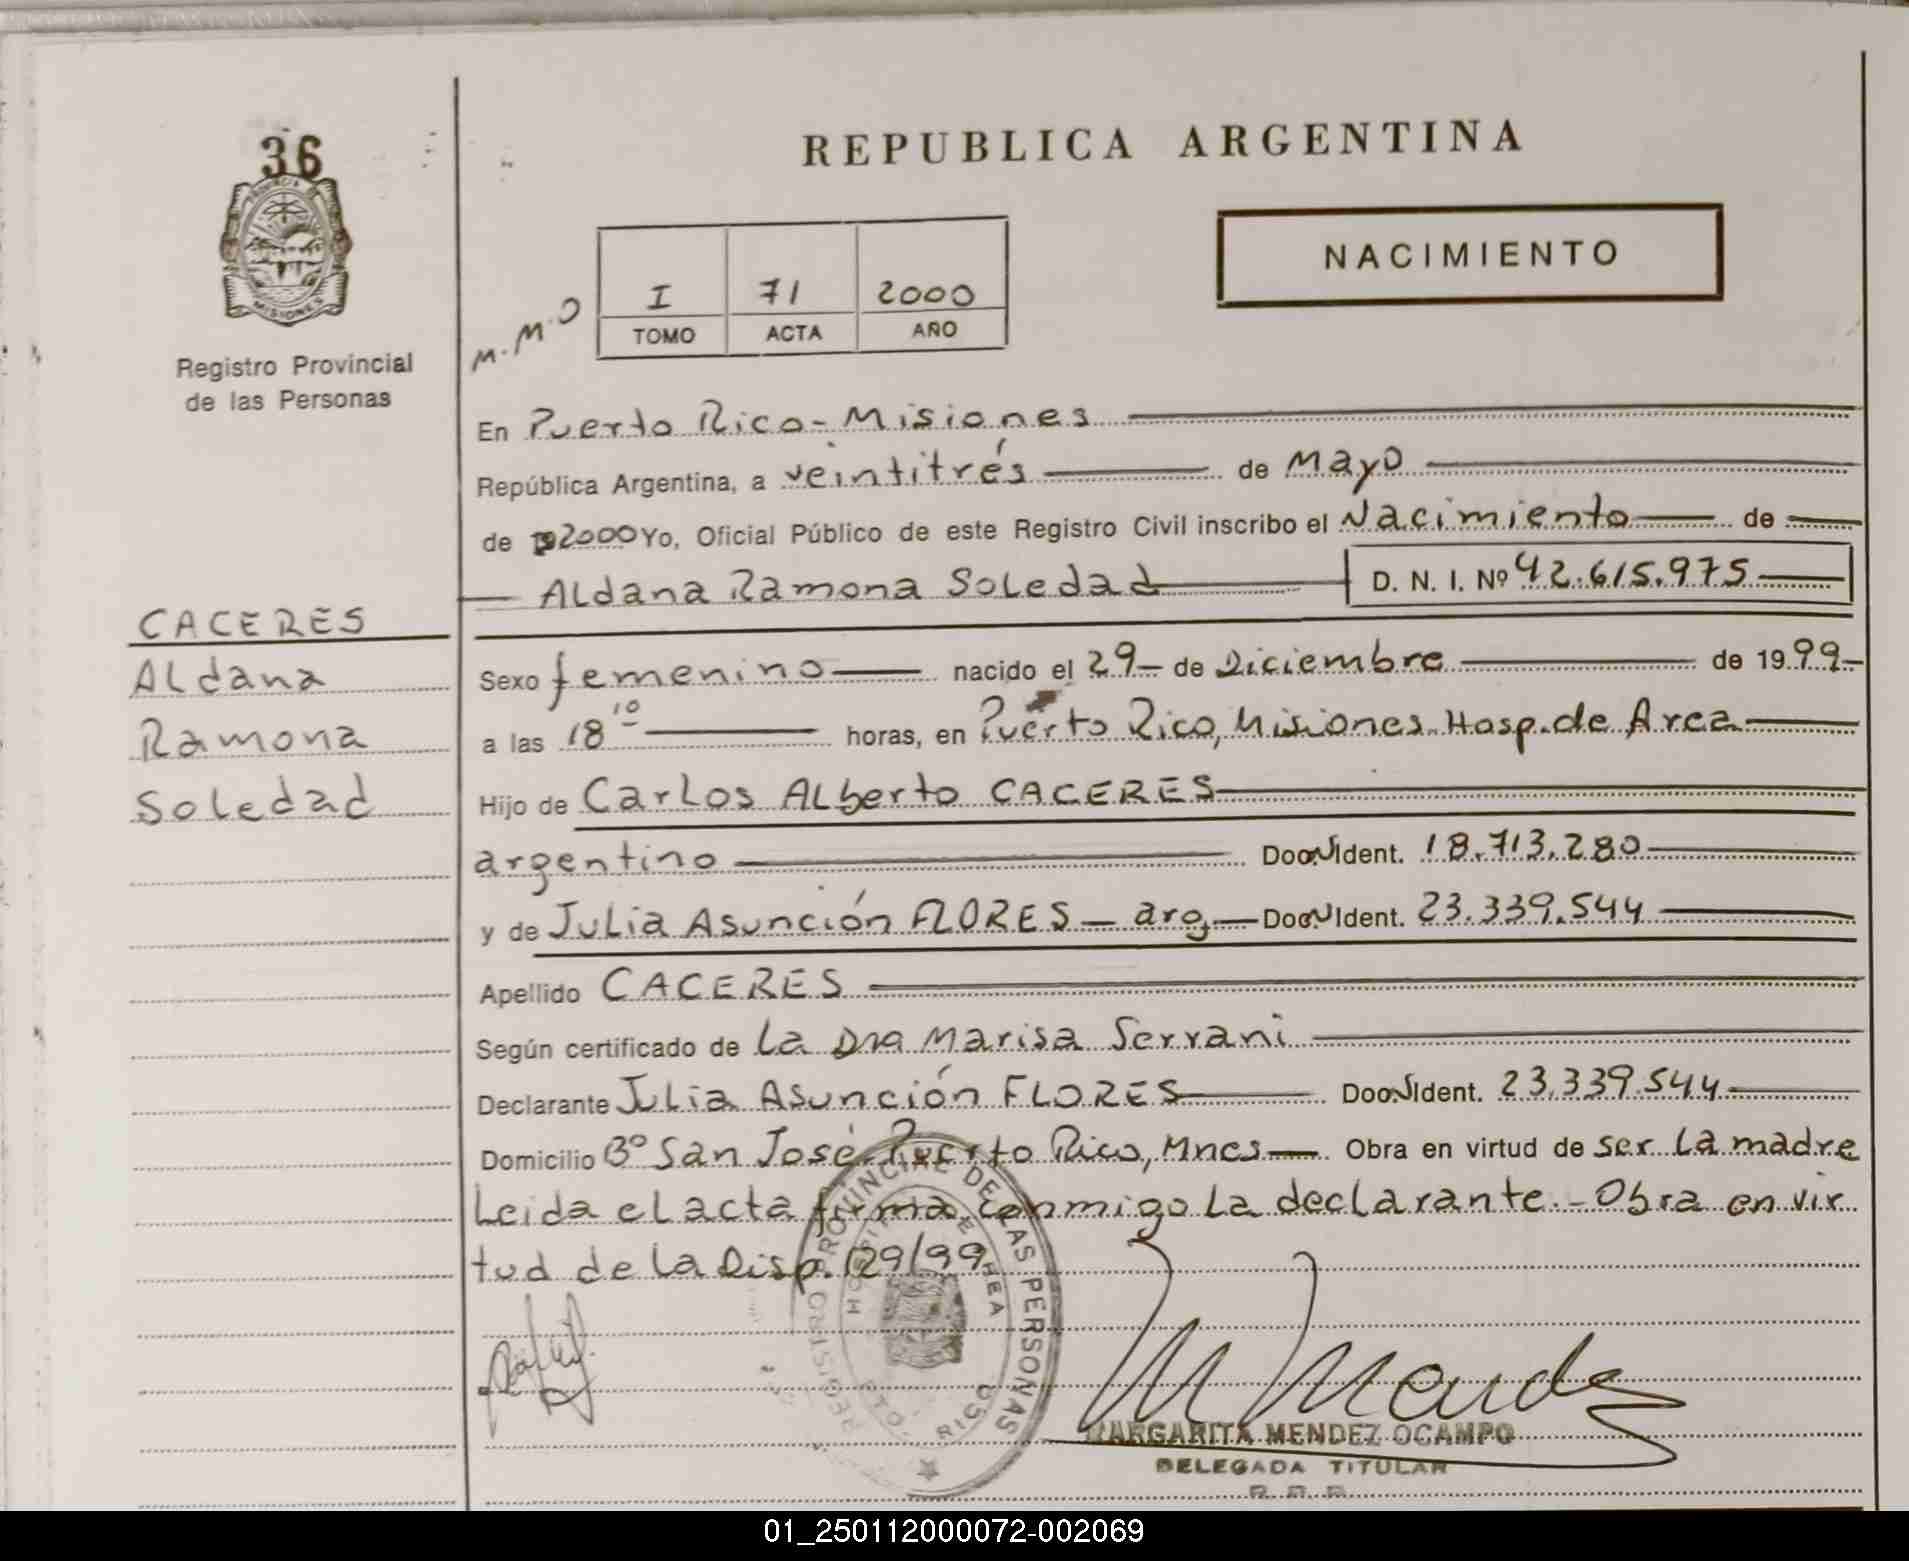 36
PROVINCIA
MISIONES
Registro Provincial
de las Personas
REPUBLICA ARGENTINA
NACIMIENTO
M.M.O
I 71 2000
TOMO ACTA AÑO
En Puerto Rico-Misiones
República Argentina, a veintitrés de Mayo
de 2000 Yo, Oficial Público de este Registro Civil inscribo el Nacimiento de
Aldana Ramona Soledad D. N. I. Nº 42.615.975
CACERES
Aldana
Ramona
Soledad
Sexo femenino nacido el 29 de Diciembre de 1999
a las 18 10 horas, en Puerto Rico, Misiones. Hosp. de Area
Hijo de Carlos Alberto CACERES
argentino Doc. Ident. 18.713.280
y de Julia Asunción FLORES - arg. Doc. Ident. 23.339.544
Apellido CACERES
Según certificado de La Dra Marisa Serrani
Declarante Julia Asunción FLORES Doc. Ident. 23.339.544
Domicilio Bº San José. Puerto Rico, Mnes Obra en virtud de ser La madre
Leida el acta firma conmigo La declarante.- Obra en vir
tud de La Disp. 129/99
REGISTRO PROVINCIAL DE LAS PERSONAS
PTO. RICO
M Mendez
MARGARITA MENDEZ OCAMPO
DELEGADA TITULAR
01_250112000072-002069